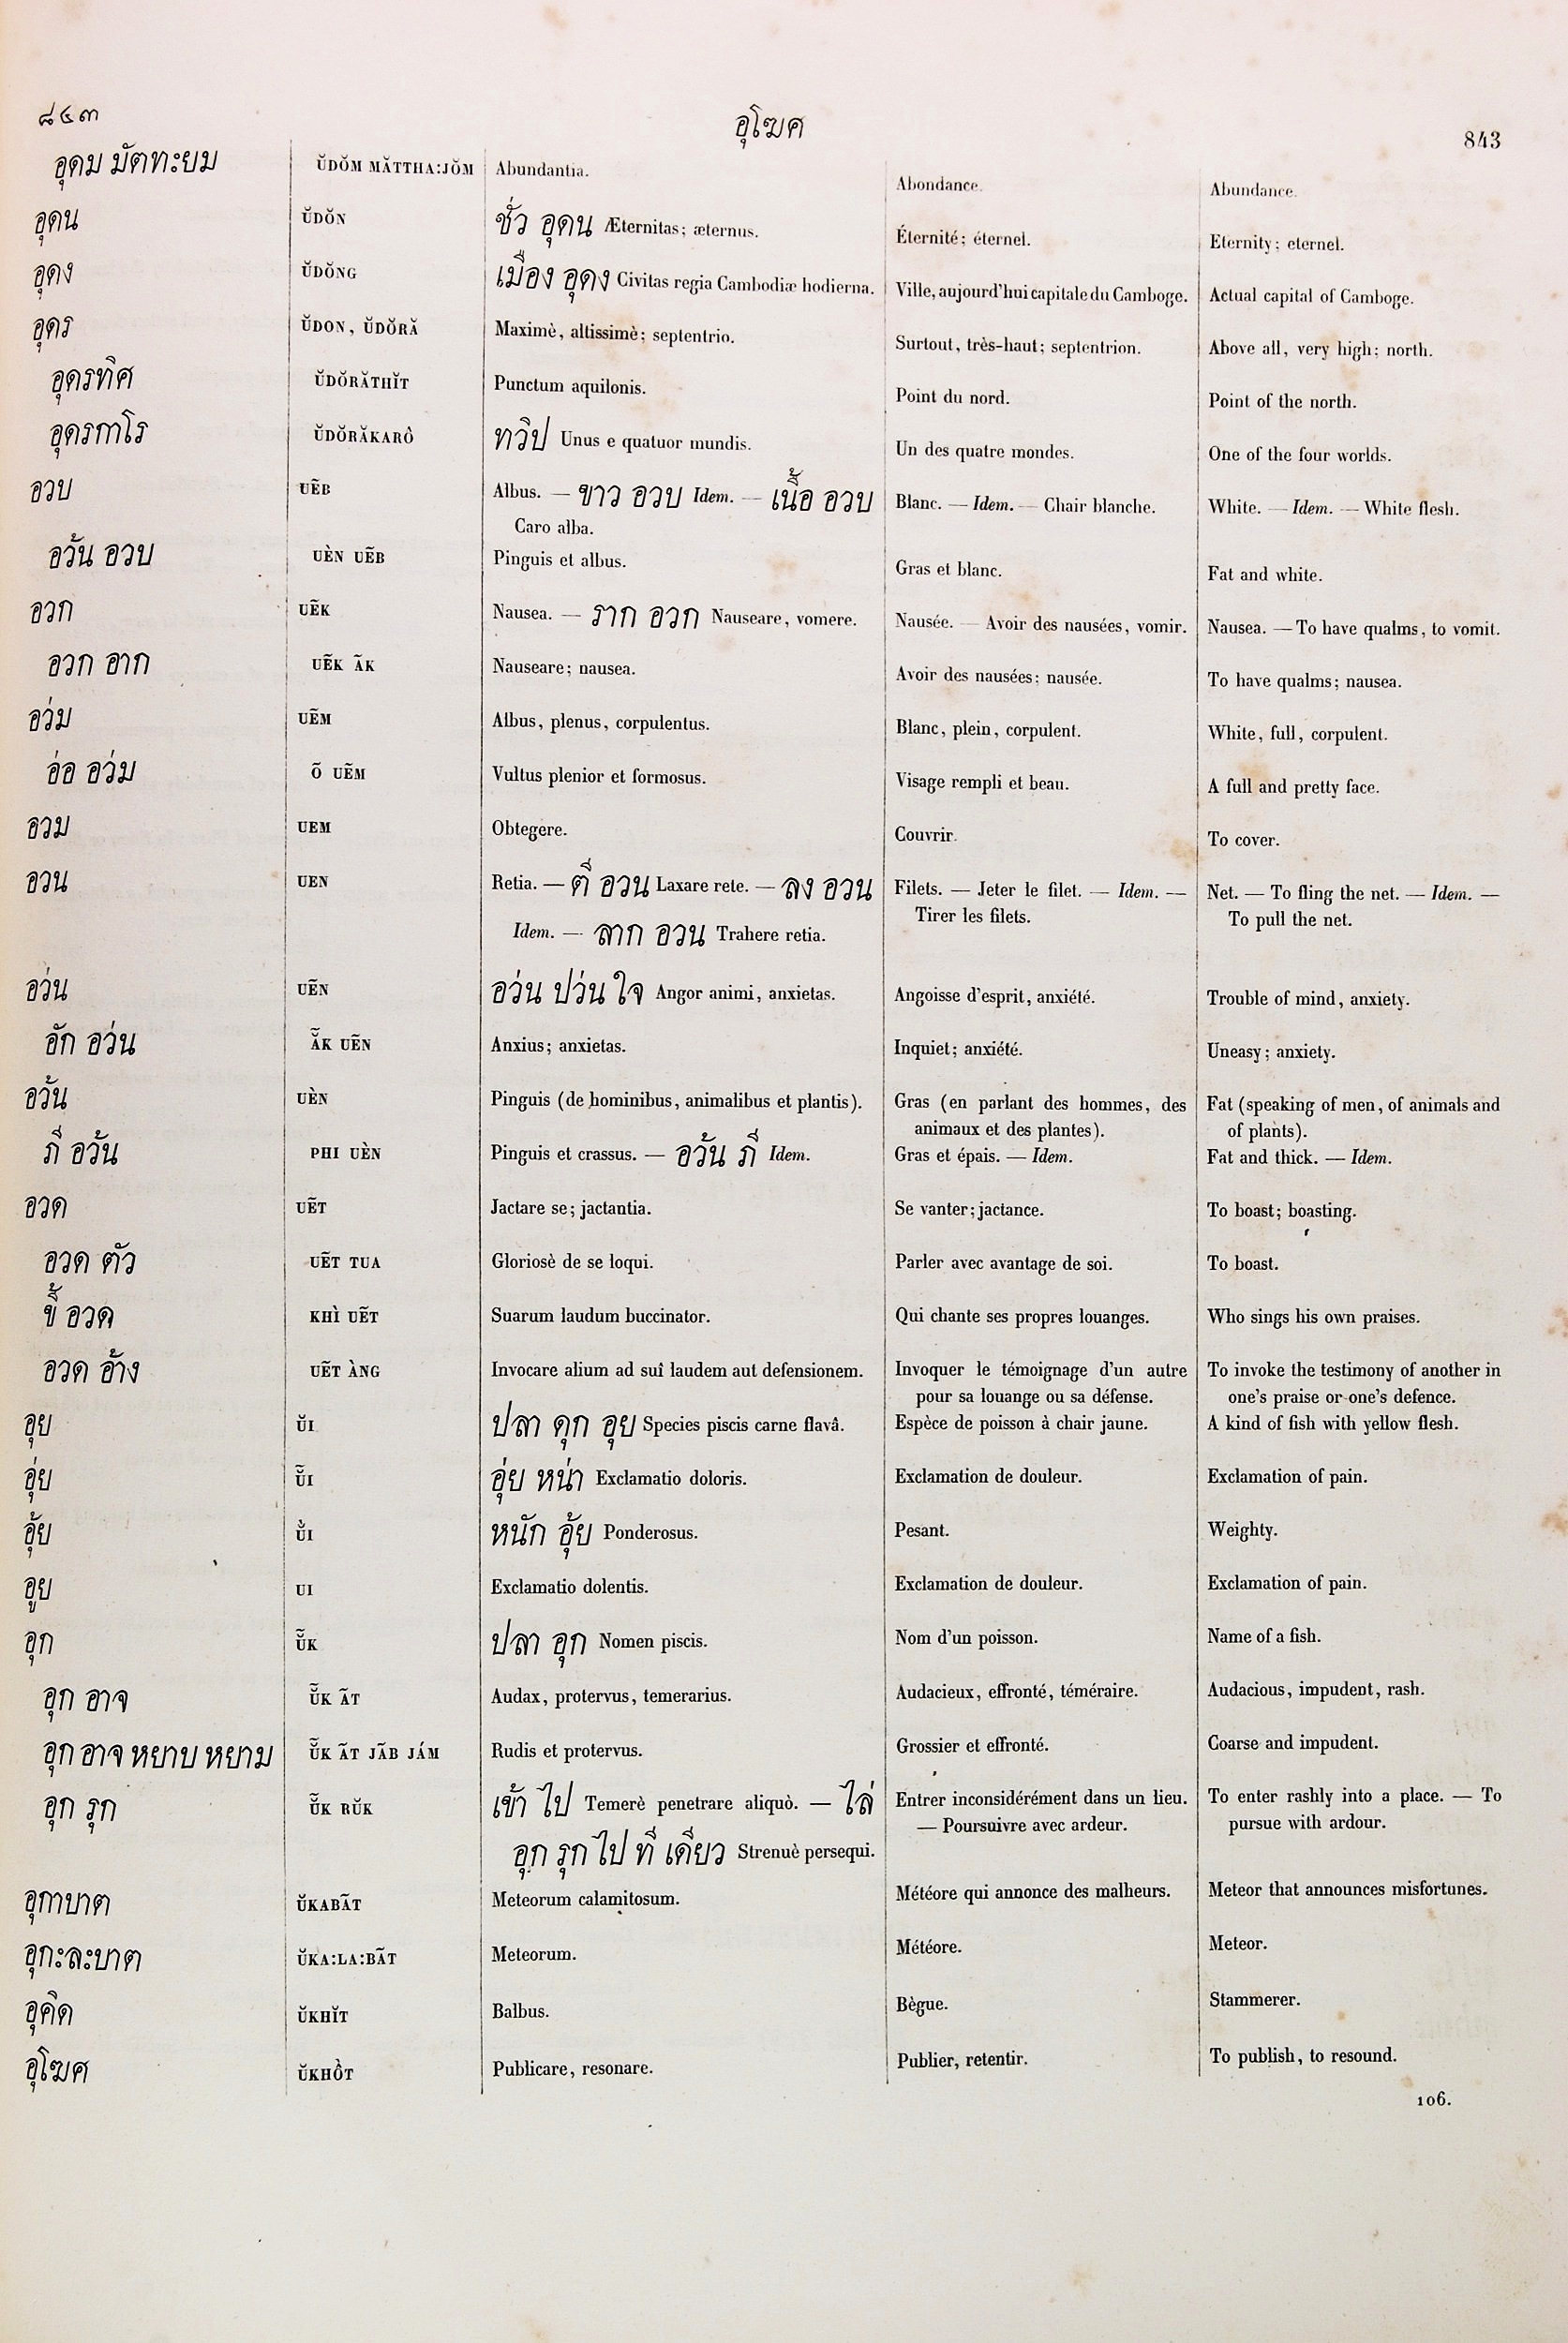 ๘๔๓ อุโฆศ 843
อุดม มัตทะยม ŬDŎM MĂTTHA:JŎM Abundantia. Abondance. Abundance.
อุดน ŬDŎN ชั่ว อุดน Æternitas; æternus. Éternité; éternel. Eternity; eternel.
อุดง ŬDŎNG เมือง อุดง Civitas regia Cambodiæ hodierna. Ville, aujourd'hui capitale du Camboge. Actual capital of Camboge.
อุดร ŬDON, ŬDŎRĂ Maximè, altissimè; septentrio. Surtout, très-haut; septentrion. Above all, very high; north.
อุดรทิศ ŬDŎRĂTHĬT Punctum aquilonis. Point du nord. Point of the north.
อุดรกาโร ŬDŎRĂKARÔ ทวิป Unus e quatuor mundis. Un des quatre mondes. One of the four worlds.
อวบ UẼB Albus. — ขาว อวบ Idem. — เนื้อ อวบ Blanc. — Idem. — Chair blanche. White. — Idem. — White flesh.
Caro alba.
อวั้น อวบ UÈN UẼB Pinguis et albus. Gras et blanc. Fat and white.
อวก UẼK Nausea. — ราก อวก Nauseare, vomere. Nausée. — Avoir des nausées, vomir. Nausea. — To have qualms, to vomit.
อวก อาก UẼK ÃK Nauseare; nausea. Avoir des nausées; nausée. To have qualms; nausea.
อว่ม UẼM Albus, plenus, corpulentus. Blanc, plein, corpulent. White, full, corpulent.
อ่อ อว่ม Õ UẼM Vultus plenior et formosus. Visage rempli et beau. A full and pretty face.
อวม UEM Obtegere. Couvrir. To cover.
อวน UEN Retia. — ตี อวน Laxare rete. — ลง อวน Filets. — Jeter le filet. — Idem. — Net. — To fling the net. — Idem. —
Idem. — ลาก อวน Trahere retia. Tirer les filets. To pull the net.
อว่น UẼN อว่น ปว่น ใจ Angor animi, anxietas. Angoisse d'esprit, anxiété. Trouble of mind, anxiety.
อัก อว่น ẴK UẼN Anxius; anxietas. Inquiet; anxiété. Uneasy; anxiety.
อวั้น UÈN Pinguis (de hominibus, animalibus et plantis). Gras (en parlant des hommes, des Fat (speaking of men, of animals and
animaux et des plantes). of plants).
ภี อวั้น PHI UÈN Pinguis et crassus. — อวั้น ภี Idem. Gras et épais. — Idem. Fat and thick. — Idem.
อวด UẼT Jactare se; jactantia. Se vanter; jactance. To boast; boasting.
อวด ตัว UẼT TUA Gloriosè de se loqui. Parler avec avantage de soi. To boast.
ขี้ อวด KHÌ UẼT Suarum laudum buccinator. Qui chante ses propres louanges. Who sings his own praises.
อวด อ้าง UẼT ÀNG Invocare alium ad suî laudem aut defensionem. Invoquer le témoignage d'un autre To invoke the testimony of another in
pour sa louange ou sa défense. one's praise or one's defence.
อุย ŬI ปลา ดุก อุย Species piscis carne flavâ. Espèce de poisson à chair jaune. A kind of fish with yellow flesh.
อุ่ย Ŭ̃I อุ่ย หน่า Exclamatio doloris. Exclamation de douleur. Exclamation of pain.
อุ้ย Ŭ̀I หนัก อุ้ย Ponderosus. Pesant. Weighty.
อูย UI Exclamatio dolentis. Exclamation de douleur. Exclamation of pain.
อุก Ŭ̃K ปลา อุก Nomen piscis. Nom d'un poisson. Name of a fish.
อุก อาจ Ŭ̃K ÃT Audax, protervus, temerarius. Audacieux, effronté, téméraire. Audacious, impudent, rash.
อุก อาจ หยาบ หยาม Ŭ̃K ÃT JÃB JÁM Rudis et protervus. Grossier et effronté. Coarse and impudent.
อุก รุก Ŭ̃K RŬK เข้า ไป Temerè penetrare aliquò. — ไล่ Entrer inconsidérément dans un lieu. To enter rashly into a place. — To
อุก รุก ไป ที เดียว Strenuè persequi. — Poursuivre avec ardeur. pursue with ardour.
อุกาบาต ŬKABÃT Meteorum calamitosum. Météore qui annonce des malheurs. Meteor that announces misfortunes.
อุกะละบาต ŬKA:LA:BÃT Meteorum. Météore. Meteor.
อุคิด ŬKHĬT Balbus. Bègue. Stammerer.
อุโฆศ ŬKHỒT Publicare, resonare. Publier, retentir. To publish, to resound.
106.